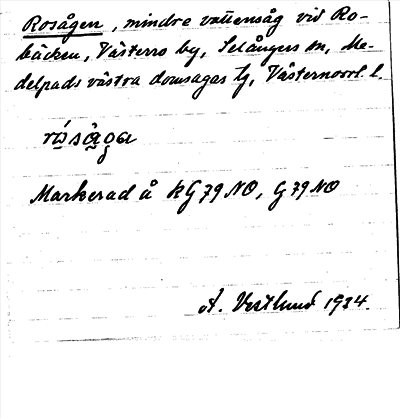 Rosågen, mindre vattensåg vid Ro-
bäcken, Västerro by, Selångers sn, Me-
delpads västra domsagas tg, Västernorrl. l.
Markerad å KG 79 NO, G 79 NO
A. Vestlund 1934.